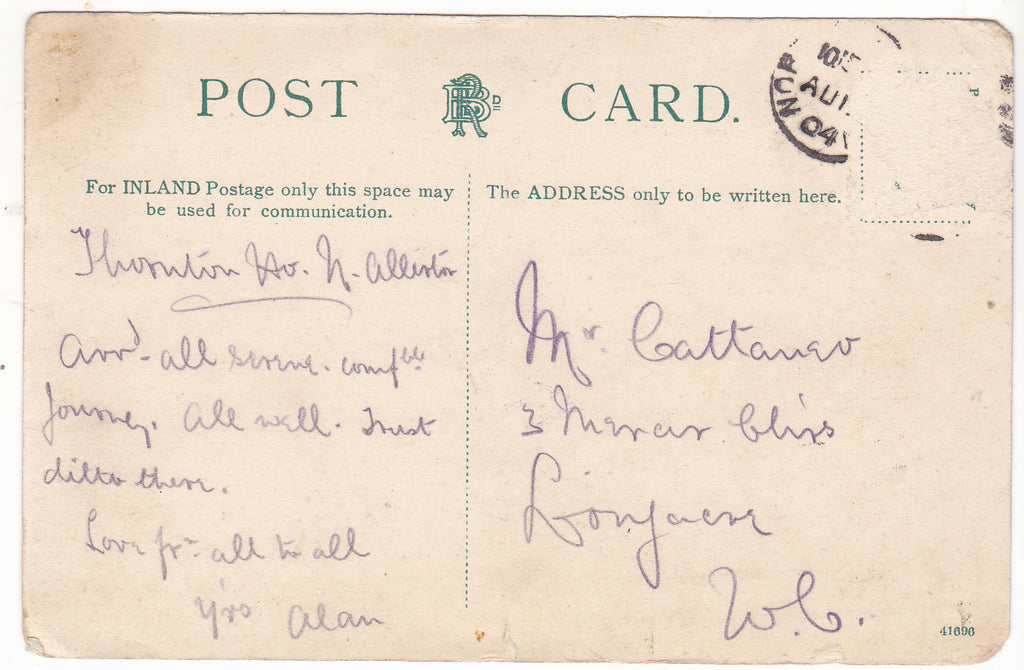 POST CARD.
For INLAND Postage only this space may
be used for communication.
The ADDRESS only to be written here.
10 15
AU 1
04
Thornton Ho. N.
Arrd. all serene. comfble
journey. All well. Trust
ditto there.
Love fr. all to all
Yrs Alan
Mr. Cattaneo
3 Mercer
Longacre
W.C.
41696